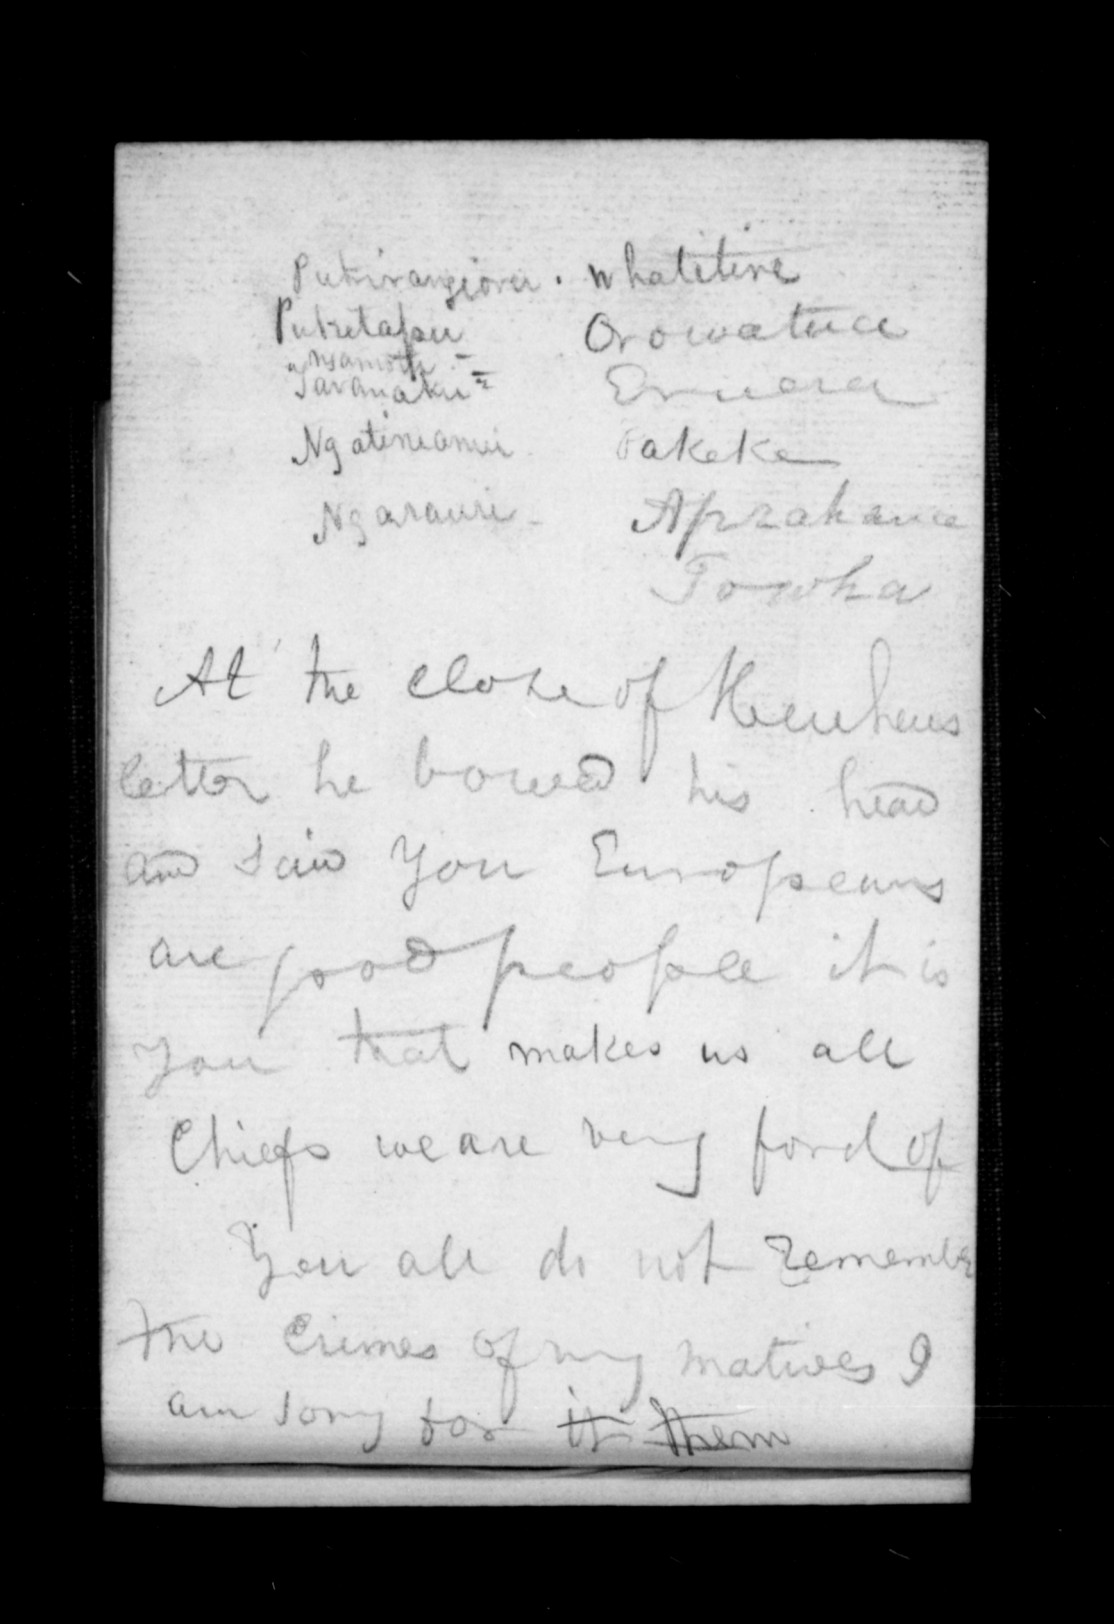 Pukirangiora . Whatitiri
Puketapu Orowatua
Ngamotu -
Taranaki Eruera
Ngatiruanui Pakeke
Ngarauri - Aprahama
Towha
At the close of Heuheus
letter he bowed his head
and said You Europeans
are good people it is
you that makes us all
Chiefs we are very fond of
You all do not remember
the Crimes of my natives I
am sorry for it them